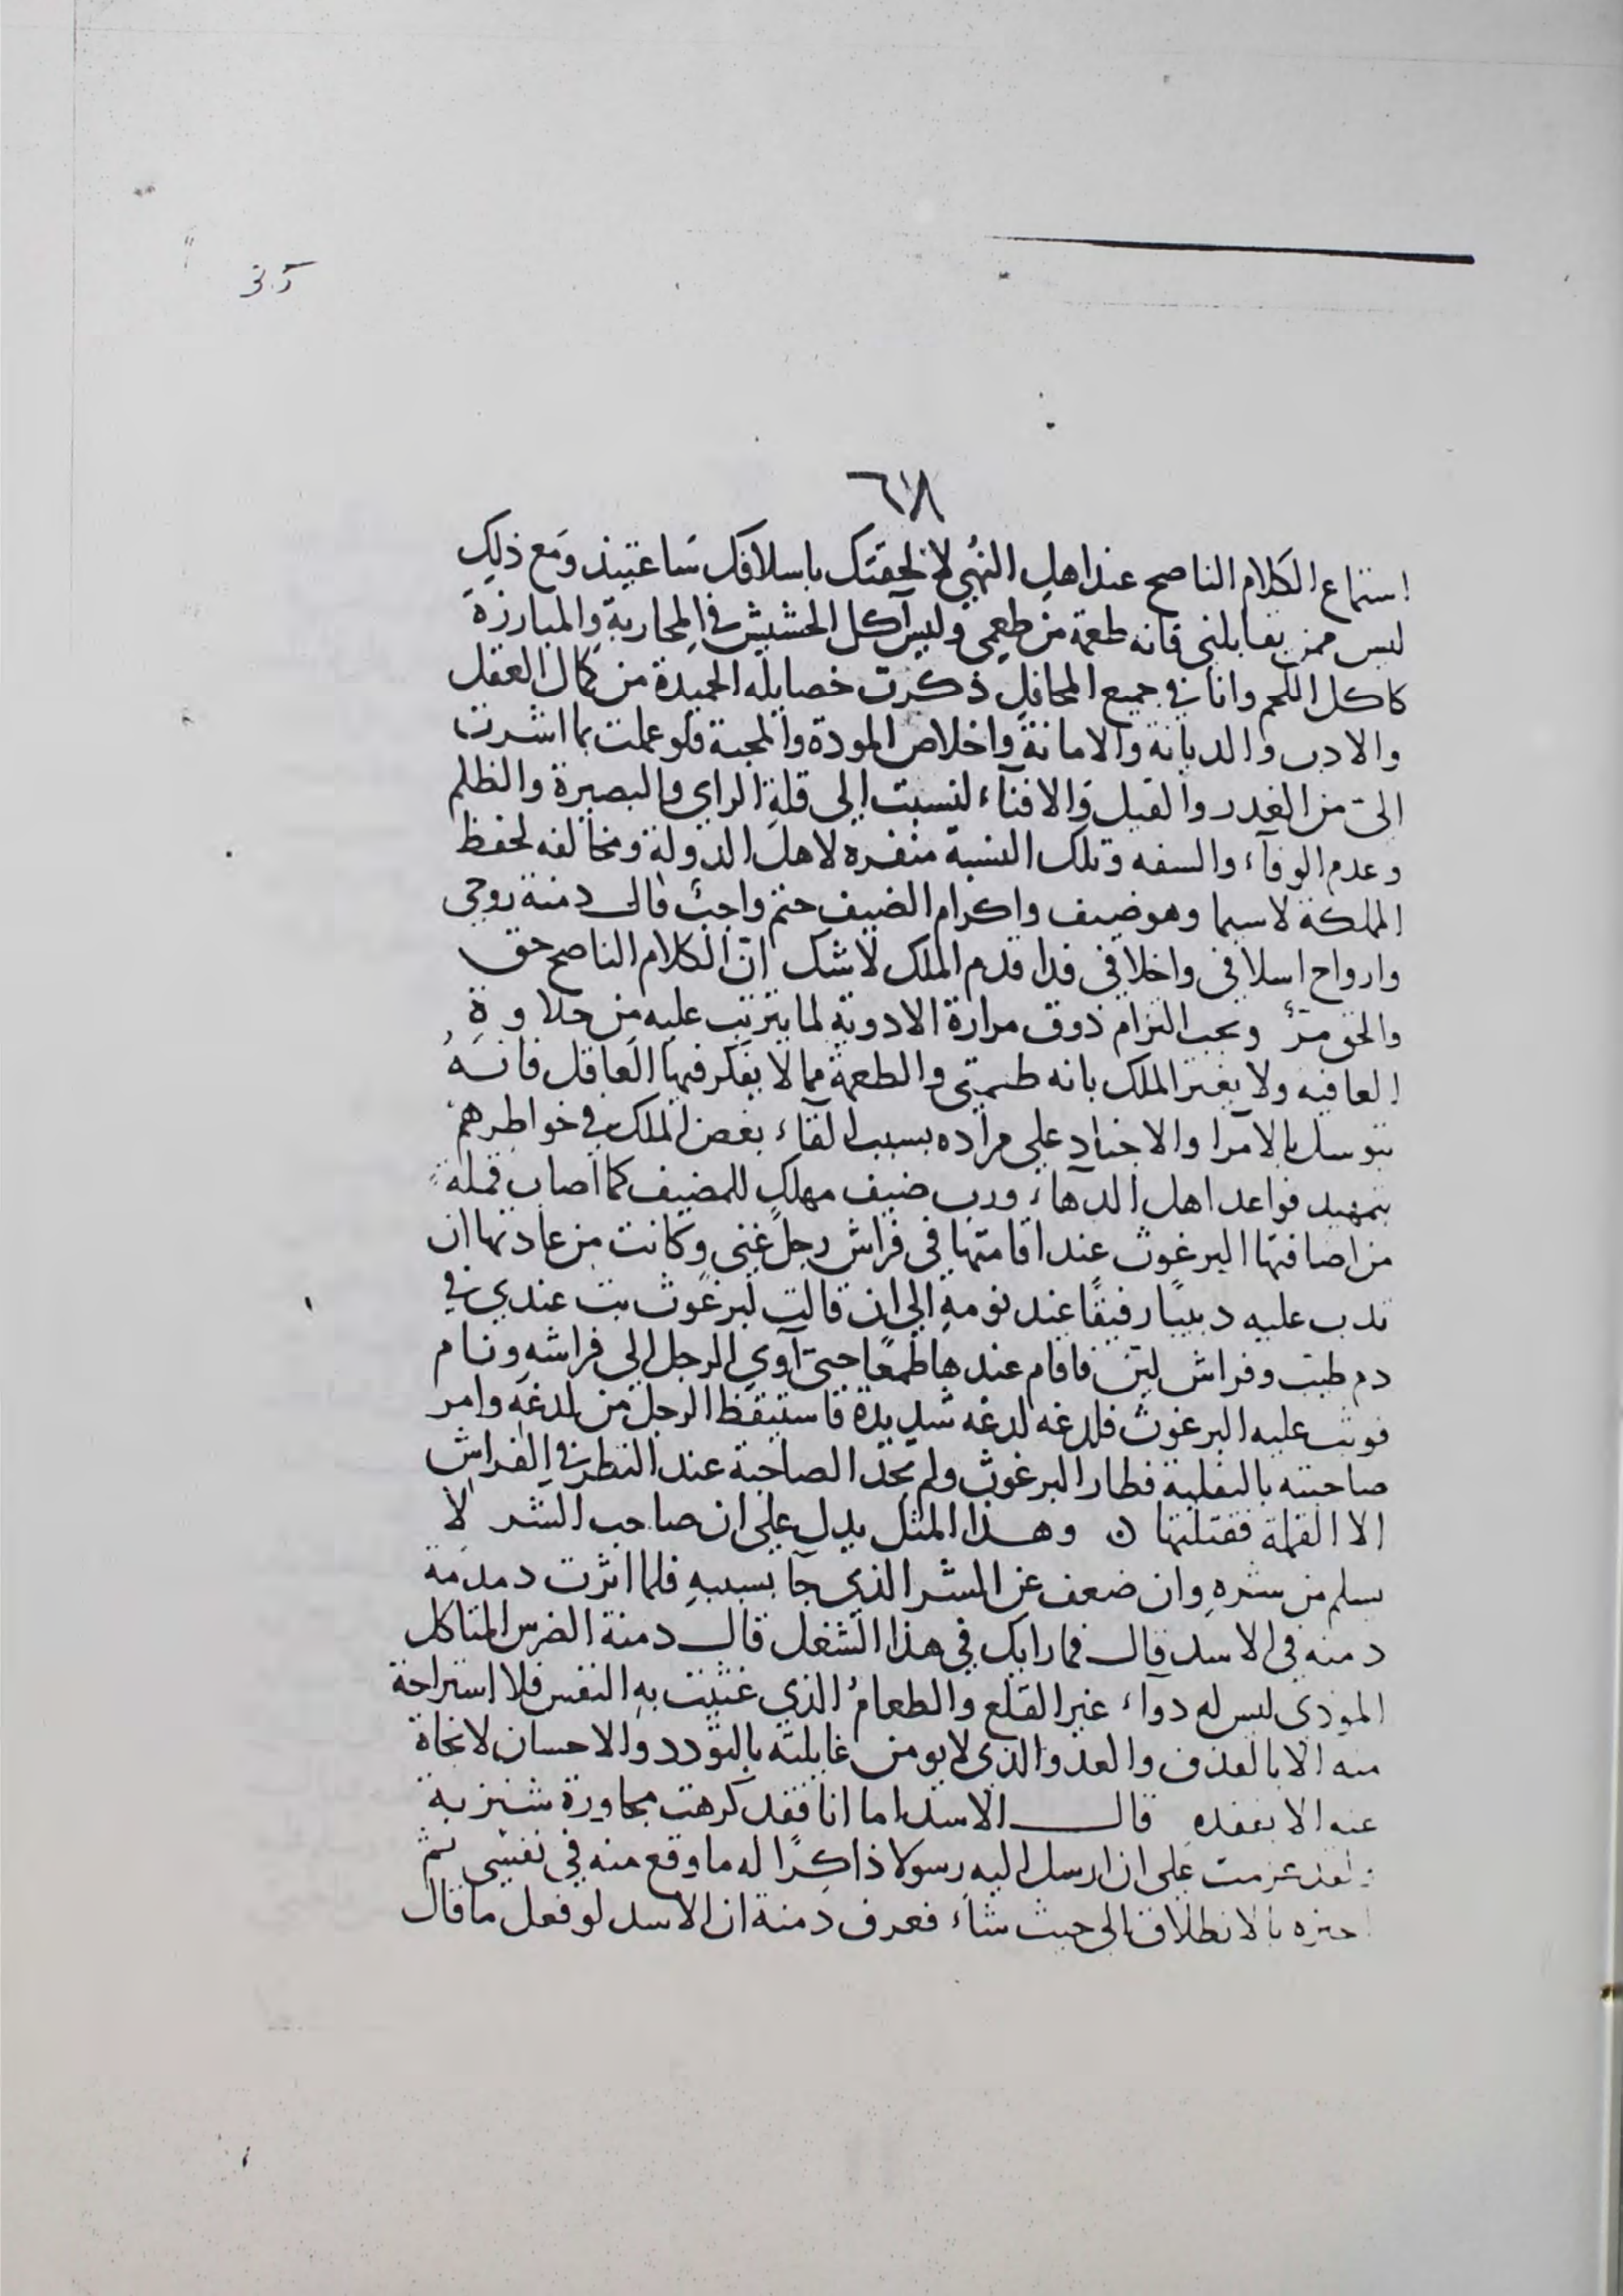 35
٦٨
استماع الكلام الناصح عند اهل النهي لالحقتك باسلافك ساعتيذ ومع ذلك
ليس ممن يقابلني فانه طعمة من طعمي وليس آكل الحشيش في المحاربة والمبارزة
كاكل اللحم وانا في جميع المحافل ذكرت خصايله الحميدة من كمال العقل
والادب والديانة والامانة واخلاص المودة والمحبة فلو عملت بما اشرت
الىّ من الغدر والقيل والافناء لنسبت الى قلة الراي والبصيرة والظلم
وعدم الوفاء والسفه وتلك النسبة منفره لاهل الدولة ومخالفه لحفظ
المملكة لاسيما وهو ضيف واكرام الضيف حتم واجب قال دمنة روحي
وارواح اسلافي واخلافي فدا قدم الملك لاشك انّ الكلام الناصح حق
والحق مرّ ويجب التزام ذوق مرارة الادوية لما يترتب عليه من حلاوة
العافيه ولا يغتر الملك بانه طعمتي والطعمة مما لا يفكر فيها العاقل فانهُ
يتوسل بالامرا والاجناد على مراده بسبب القاء بغض الملك في خواطرهم
بتمهيد قواعد اهل الدهاء ورب ضيف مهلك للمضيف كما اصاب قملة
من اضافتها البرغوث عند اقامتها في فراش رجل غني وكانت من عادتها ان
تدب عليه دبيبًا رفيقًا عند نومه الى ان قالت لبرغوث بت عندي في
دم طيب وفراش لين فاقام عندها طمعًا حتى آوي الرجل الى فراشه ونام
فوثب عليه البرغوث فلدغه لدغه شديدة فاستيقظ الرجل من لدغه وامر
صاحبته بالتفلية فطار البرغوث ولم تجد الصاحبة عند النظر في الفراش
الا القملة فقتلتها ن وهذا المثل يدل على ان صاحب الشر لا
يسلم من شره وان ضعف عن الشر الذي جآ بسببه فلما اثرت دمدمة
دمنه في الاسد قال فما رايك في هذا الشغل قال دمنة الضرس المتاكل
الموذي ليس له دوآء غير القلع والطعام الذي غثيت به النفس فلا استراحة
منه الا بالقذف والعدو الذي لا يومن غايلته بالتودد والاحسان لانجاة
عنه الا بفقده قال الاسد اما انا فقد كرهت مجاورة شنزبة
عزمت على ان ارسل اليه رسولا ذاكرًا له ما وقع منه في نفسي ثم
بالانطلاق الى حيث شاء فعرف دمنة ان الاسد لو فعل ما قال